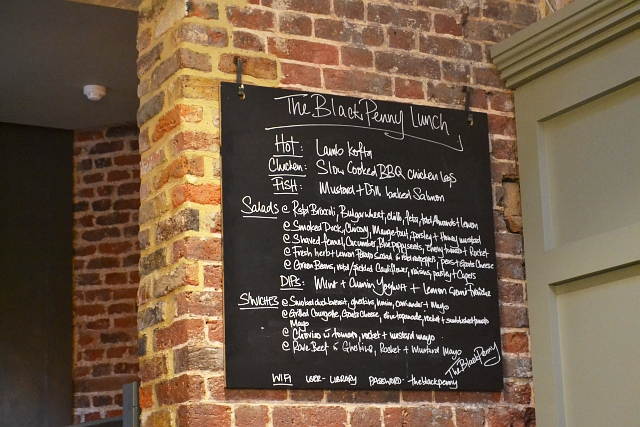 The Black Penny Lunch
Hot: Lamb kofta
Chicken: Slow Cooked BBQ chicken legs
Fish: Mustard + Dill baked Salmon
Salads @ Broccoli, Bulgar wheat, chilli, feta, almonds + lemon
@ Smoked Duck, Chicory, Mangetout, parsley + Honey mustard
@ Shaved fennel, Cucumber, Blue poppyseeds, Cherry tomato + Rocket
@ Fresh herb + Lemon Potato salad red pepper, peas + Goats Cheese
@ Green Beans, pickled Cauliflower, raisins, parsley + Capers
DIPS: Mint + Cumin Yoghurt + lemon Creme Fraiche
@ Smoked duck breast, gherkins, coriander + Mayo
@ Grilled Courgette, Goats Cheese, olive tapenade, rocket + sundried tomato
Mayo
@ tomato, rocket + mustard mayo
@ Rare Beef Gherkins, Rocket + Mustard Mayo
The Black Penny
WIFI USER - LIBRARY PASSWORD - theblackpenny